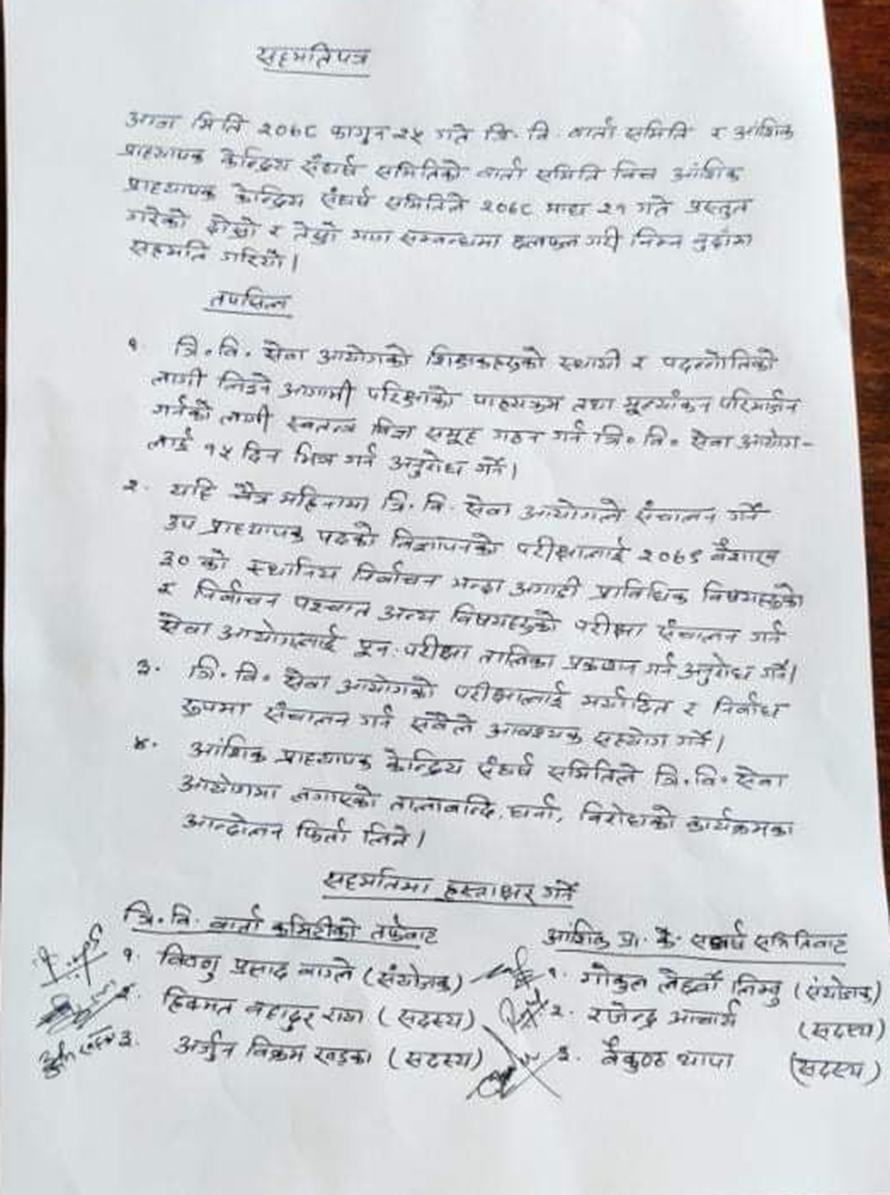 सहमतिपत्र
आज मिति २०७८ फागुन २५ गते त्रि. वि. वार्ता समिति र आंशिक
प्राध्यापक केन्द्रिय संघर्ष समितिको वार्ता समिति बिच आंशिक
प्राध्यापक केन्द्रिय संघर्ष समितिले २०७८ माघ २१ गते प्रस्तुत
गरेको दोस्रो र तेस्रो माग सम्बन्धमा छलफल गरी निम्न बुदाँमा
सहमति गरियो।
तपसिल
१. त्रि. वि. सेवा आयोगको शिक्षकहरुको स्थायी र पदोन्नोतिको
लागी लिइने आगामी परिक्षाको पाठ्यक्रम तथा मूल्यांकन परिमार्जन
गर्नको लागी स्वतन्त्र विज्ञ समूह गठन गर्न त्रि. वि. सेवा आयोग-
लाई १५ दिन भित्र गर्न अनुरोध गर्ने।
२. यहि चैत्र महिनामा त्रि. वि. सेवा आयोगले संचालन गर्ने
उप प्राध्यापक पदको विज्ञापनको परीक्षालाई २०७९ बैशाख
३० को स्थानिय निर्वाचन भन्दा अगाडी प्राविधिक विषयहरुको
र निर्वाचन पश्चात अन्य विषयहरुको परीक्षा संचालन गर्न
सेवा आयोगलाई पून: परीक्षा तालिका प्रकाशन गर्न अनुरोध गर्ने।
३. त्रि. वि. सेवा आयोगको परीक्षालाई मर्यादित र निर्वाध
रुपमा संचालन गर्न सबैले आवश्यक सहयोग गर्ने।
४. आंशिक प्राध्यापक केन्द्रिय संघर्ष समितिले त्रि. वि. सेवा
आयोगमा लगाएको तालाबन्दि, धर्ना, विरोधको कार्यक्रमका
आन्दोलन फिर्ता लिने।
सहमतिमा हस्ताक्षर गर्ने
त्रि. वि. वार्ता कमिटीको तर्फबाट
१. विष्णु प्रसाद वाग्ले (संयोजक)
२. हिक्मत बहादुर राया (सदस्य)
३. अर्जुन विक्रम खड्का (सदस्य)
आंशिक प्रा. के. संघर्ष समितिबाट
१. गोकुल लिम्बु (संयोजक)
२. राजेन्द्र आचार्य (सदस्य)
३. बैकुण्ठ थापा (सदस्य)